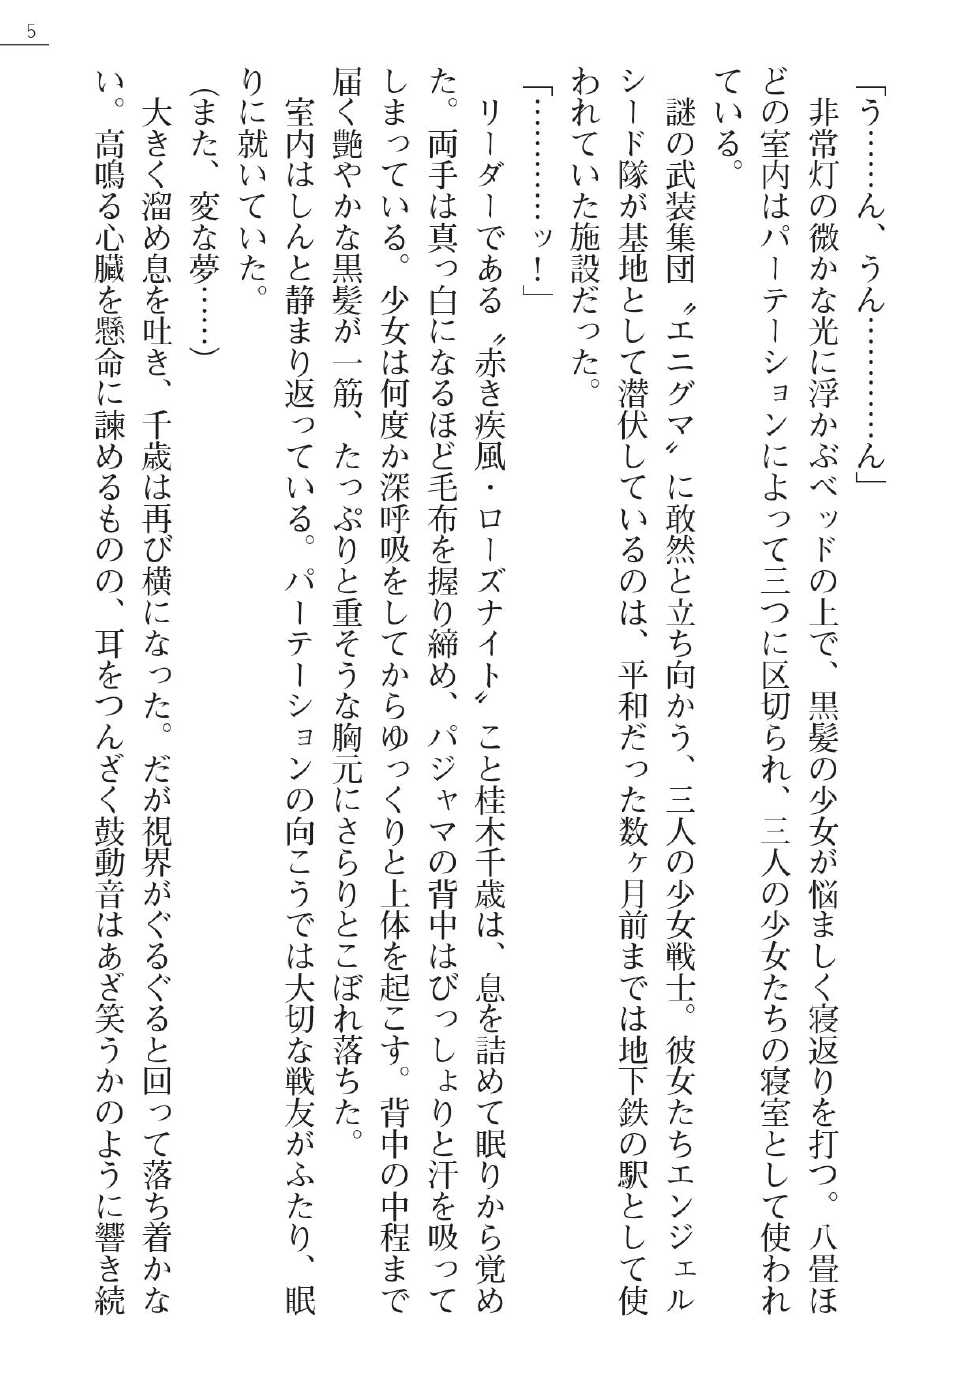 5
「う……ん、うん…………ん」
　非常灯の微かな光に浮かぶベッドの上で、黒髪の少女が悩ましく寝返りを打つ。八畳ほ
どの室内はパーテーションによって三つに区切られ、三人の少女たちの寝室として使われ
ている。
　謎の武装集団〝エニグマ〟に敢然と立ち向かう、三人の少女戦士。彼女たちエンジェル
シード隊が基地として潜伏しているのは、平和だった数ヶ月前までは地下鉄の駅として使
われていた施設だった。
「…………ッ！」
　リーダーである〝赤き疾風・ローズナイト〟こと桂木千歳は、息を詰めて眠りから覚め
た。両手は真っ白になるほど毛布を握り締め、パジャマの背中はびっしょりと汗を吸って
しまっている。少女は何度か深呼吸をしてからゆっくりと上体を起こす。背中の中程まで
届く艶やかな黒髪が一筋、たっぷりと重そうな胸元にさらりとこぼれ落ちた。
　室内はしんと静まり返っている。パーテーションの向こうでは大切な戦友がふたり、眠
りに就いていた。
（また、変な夢……）
　大きく溜め息を吐き、千歳は再び横になった。だが視界がぐるぐると回って落ち着かな
い。高鳴る心臓を懸命に諫めるものの、耳をつんざく鼓動音はあざ笑うかのように響き続